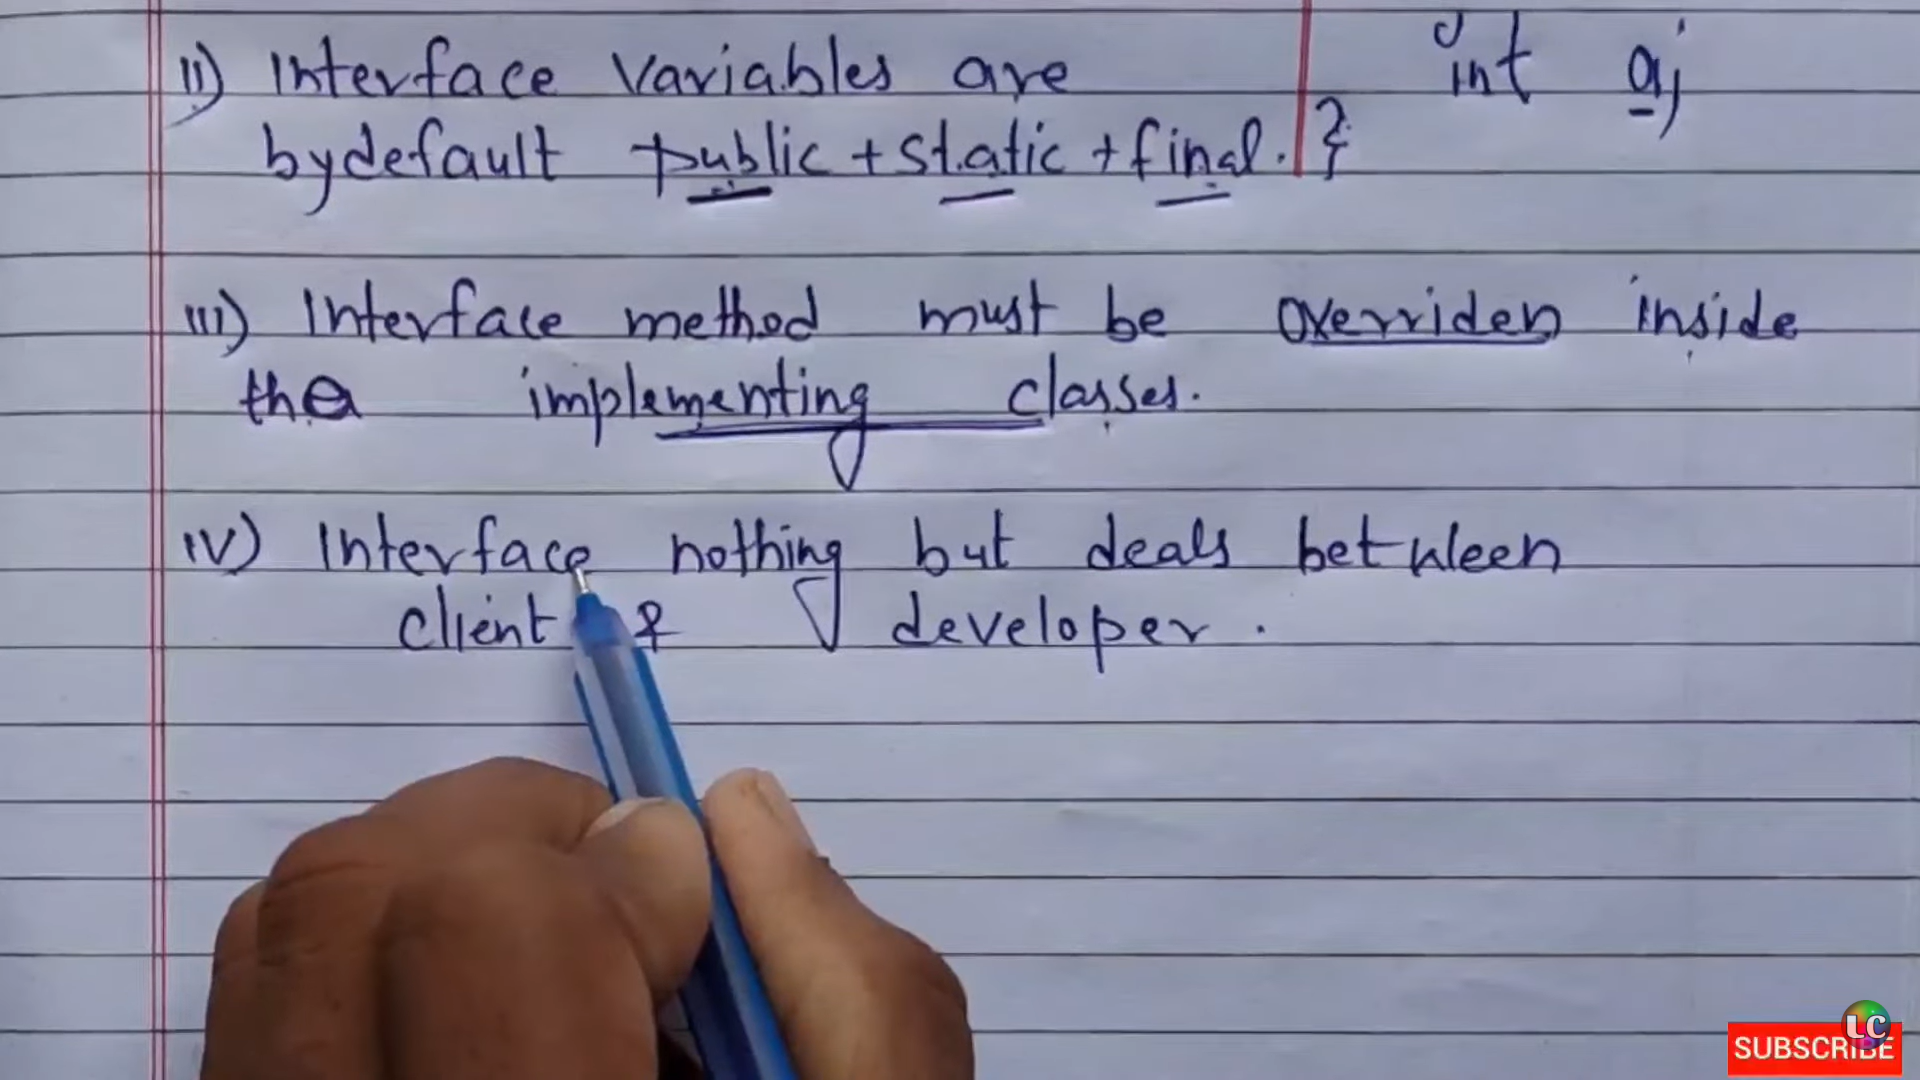 II) Interface variables are
int a;
bydefault public + static + final. }
III) Interface method must be overriden inside
the implementing classes.
IV) Interface nothing but deals between
client & developer.
LC
SUBSCRIBE